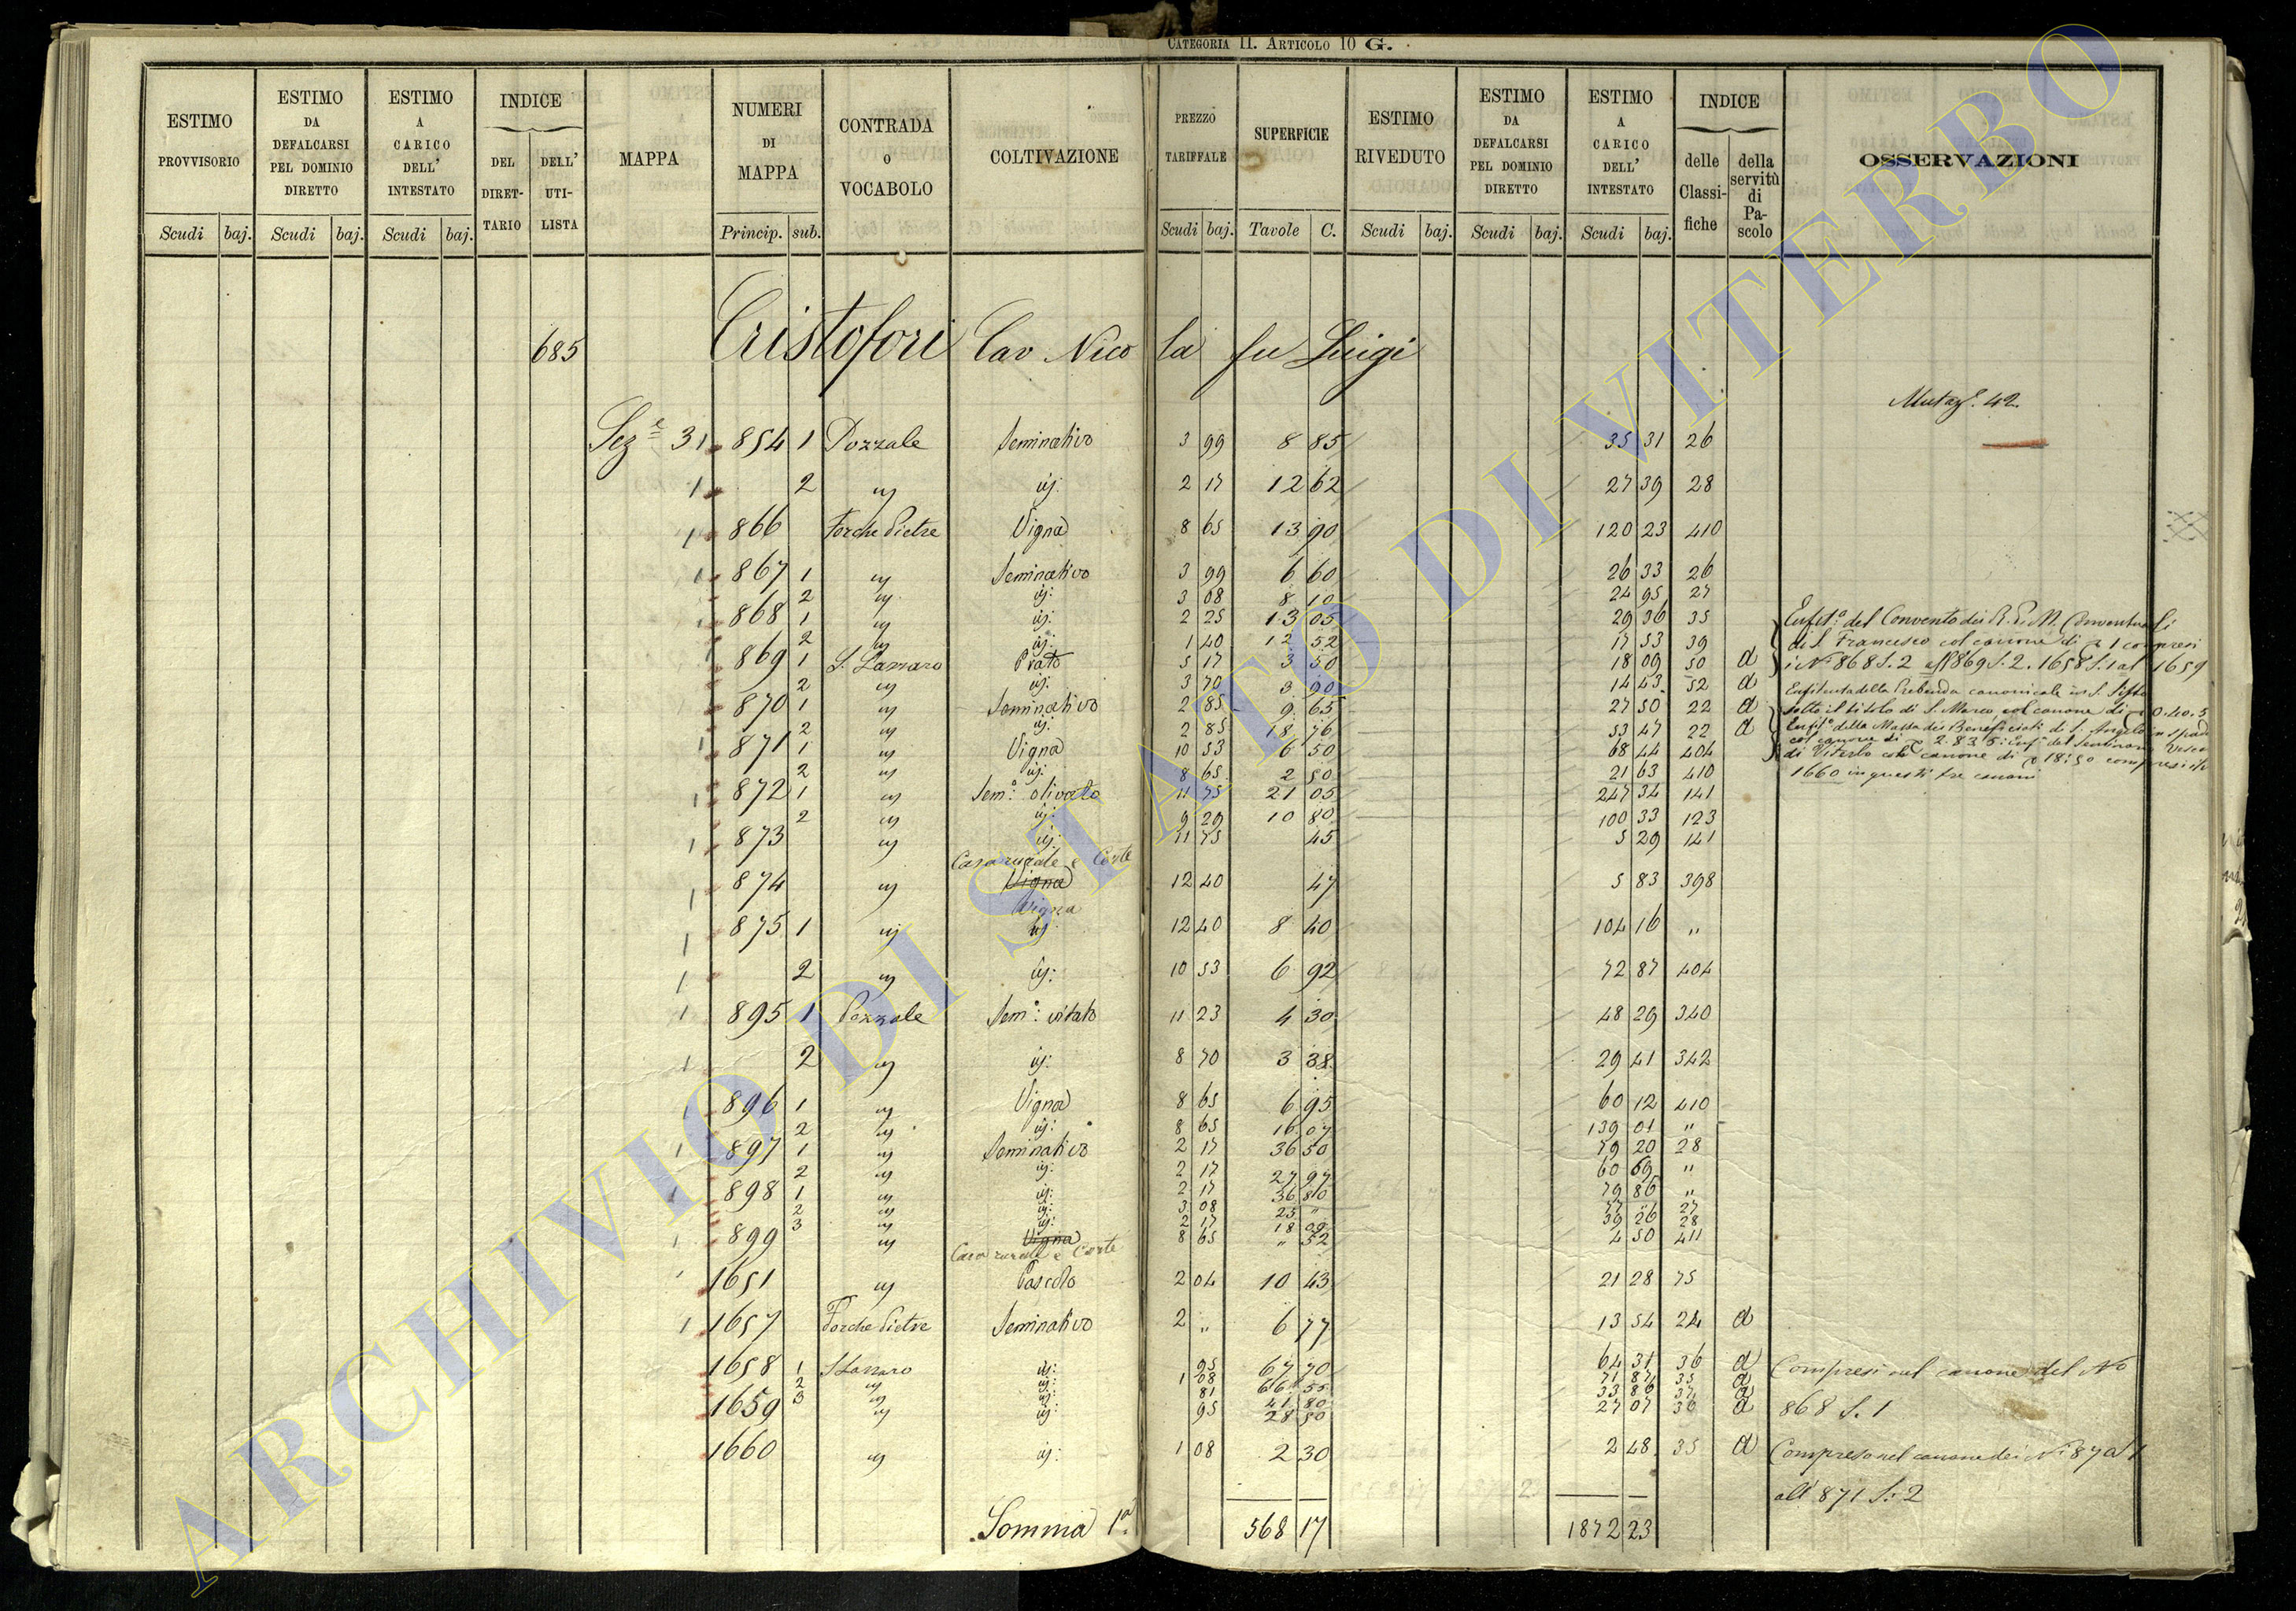 CATEGORIA II. ARTICOLO 10 G.
ESTIMO PROVVISORIO Scudi baj.
ESTIMO DA DEFALCARSI PEL DOMINIO DIRETTO Scudi baj.
ESTIMO A CARICO DELL' INTESTATO Scudi baj.
INDICE DEL DIRET-TARIO DELL' UTI-LISTA
MAPPA
NUMERI DI MAPPA Princip. sub.
CONTRADA O VOCABOLO
COLTIVAZIONE
PREZZO TARIFFALE Scudi baj.
SUPERFICIE Tavole C.
ESTIMO RIVEDUTO Scudi baj.
ESTIMO DA DEFALCARSI PEL DOMINIO DIRETTO Scudi baj.
ESTIMO A CARICO DELL' INTESTATO Scudi baj.
INDICE delle Classi-fiche della servitù di Pa-scolo
OSSERVAZIONI
685 Cristofori Cav Nicola fu Luigi
Mutaz.e 42.
Sez.e 31 854 1 Pozzale Seminativo 3 99 8 85 35 31 26
1 2 " id: 2 17 12 62 27 39 28
1 866 Forche Pietre Vigna 8 65 13 90 120 23 410
1 867 1 " Seminativo 3 99 6 60 26 33 26
2 " id: 3 08 8 10 24 95 27
868 1 " id: 2 25 13 05 29 36 35 Enfit.a del Convento dei R. P. M. Conventuali
2 " id: 1 40 12 52 17 53 39 di S. Francesco col canone di 1 compresi
1 869 1 S. Lazzaro Prato 5 17 3 50 18 09 50 a i N. 868 S. 2 all'869 S. 2. 1658 S. 1 al 1659
2 " id: 3 70 3 90 14 43 52 a Enfiteuta della Prebenda canonicale in S. Sisto
870 1 " Seminativo 2 85 9 65 27 50 22 a sotto il titolo di S. Marco col canone di 0.40.5
2 " id: 2 85 18 76 53 47 22 a Enfit.a della Massa dei Beneficiati di S. Angelo in spada
1 871 1 " Vigna 10 53 6 50 68 44 404 col canone di 2.83.5: Enf.a del Seminario Vesco
2 " id: 8 65 2 50 21 63 410 di Viterbo col canone di 18:50 compresi il
1 872 1 " Sem.o olivato 11 75 21 05 247 34 141 1660 in questi tre canoni
2 " id: 9 29 10 80 100 33 123
1 873 " id: 11 75 45 5 29 141
Casa rurale e Corte
1 874 " Vigna 12 40 47 5 83 398
Vigna
1 875 1 " id 12 40 8 40 104 16 "
1 2 " id: 10 53 6 92 72 87 404
1 895 1 Pozzale Sem.o vitato 11 23 4 30 48 29 340
1 2 " id: 8 70 3 38 29 41 342
1 896 1 " Vigna 8 65 6 95 60 12 410
2 " id: 8 65 16 07 139 01 "
1 897 1 " Seminativo 2 17 36 50 79 20 28
2 " id: 2 17 27 97 60 69 "
1 898 1 " id: 2 17 36 80 79 86 "
2 " id: 3 08 25 " 77 " 27
3 " id: 2 17 18 09 39 26 28
1 899 " Vigna 8 65 " 52 4 50 411
Casa rurale e Corte
1 1651 " Pascolo 2 04 10 43 21 28 75
1 1657 Forche Pietre Seminativo 2 " 6 77 13 54 24 a
1658 1 S Lazzaro id: 95 67 70 64 31 36 a Compresi nel canone del No
2 " id: 1 08 66 55 71 87 35 a
3 " id: 81 41 80 33 86 37 a
1659 " id: 95 28 50 27 07 36 a 868 S. 1
1660 " id: 1 08 2 30 2 48 35 a Compreso nel canone dei N.i 870 1
all' 871 S: 2
Somma 1a 568 17 1872 23
ARCHIVIO DI STATO DI VITERBO